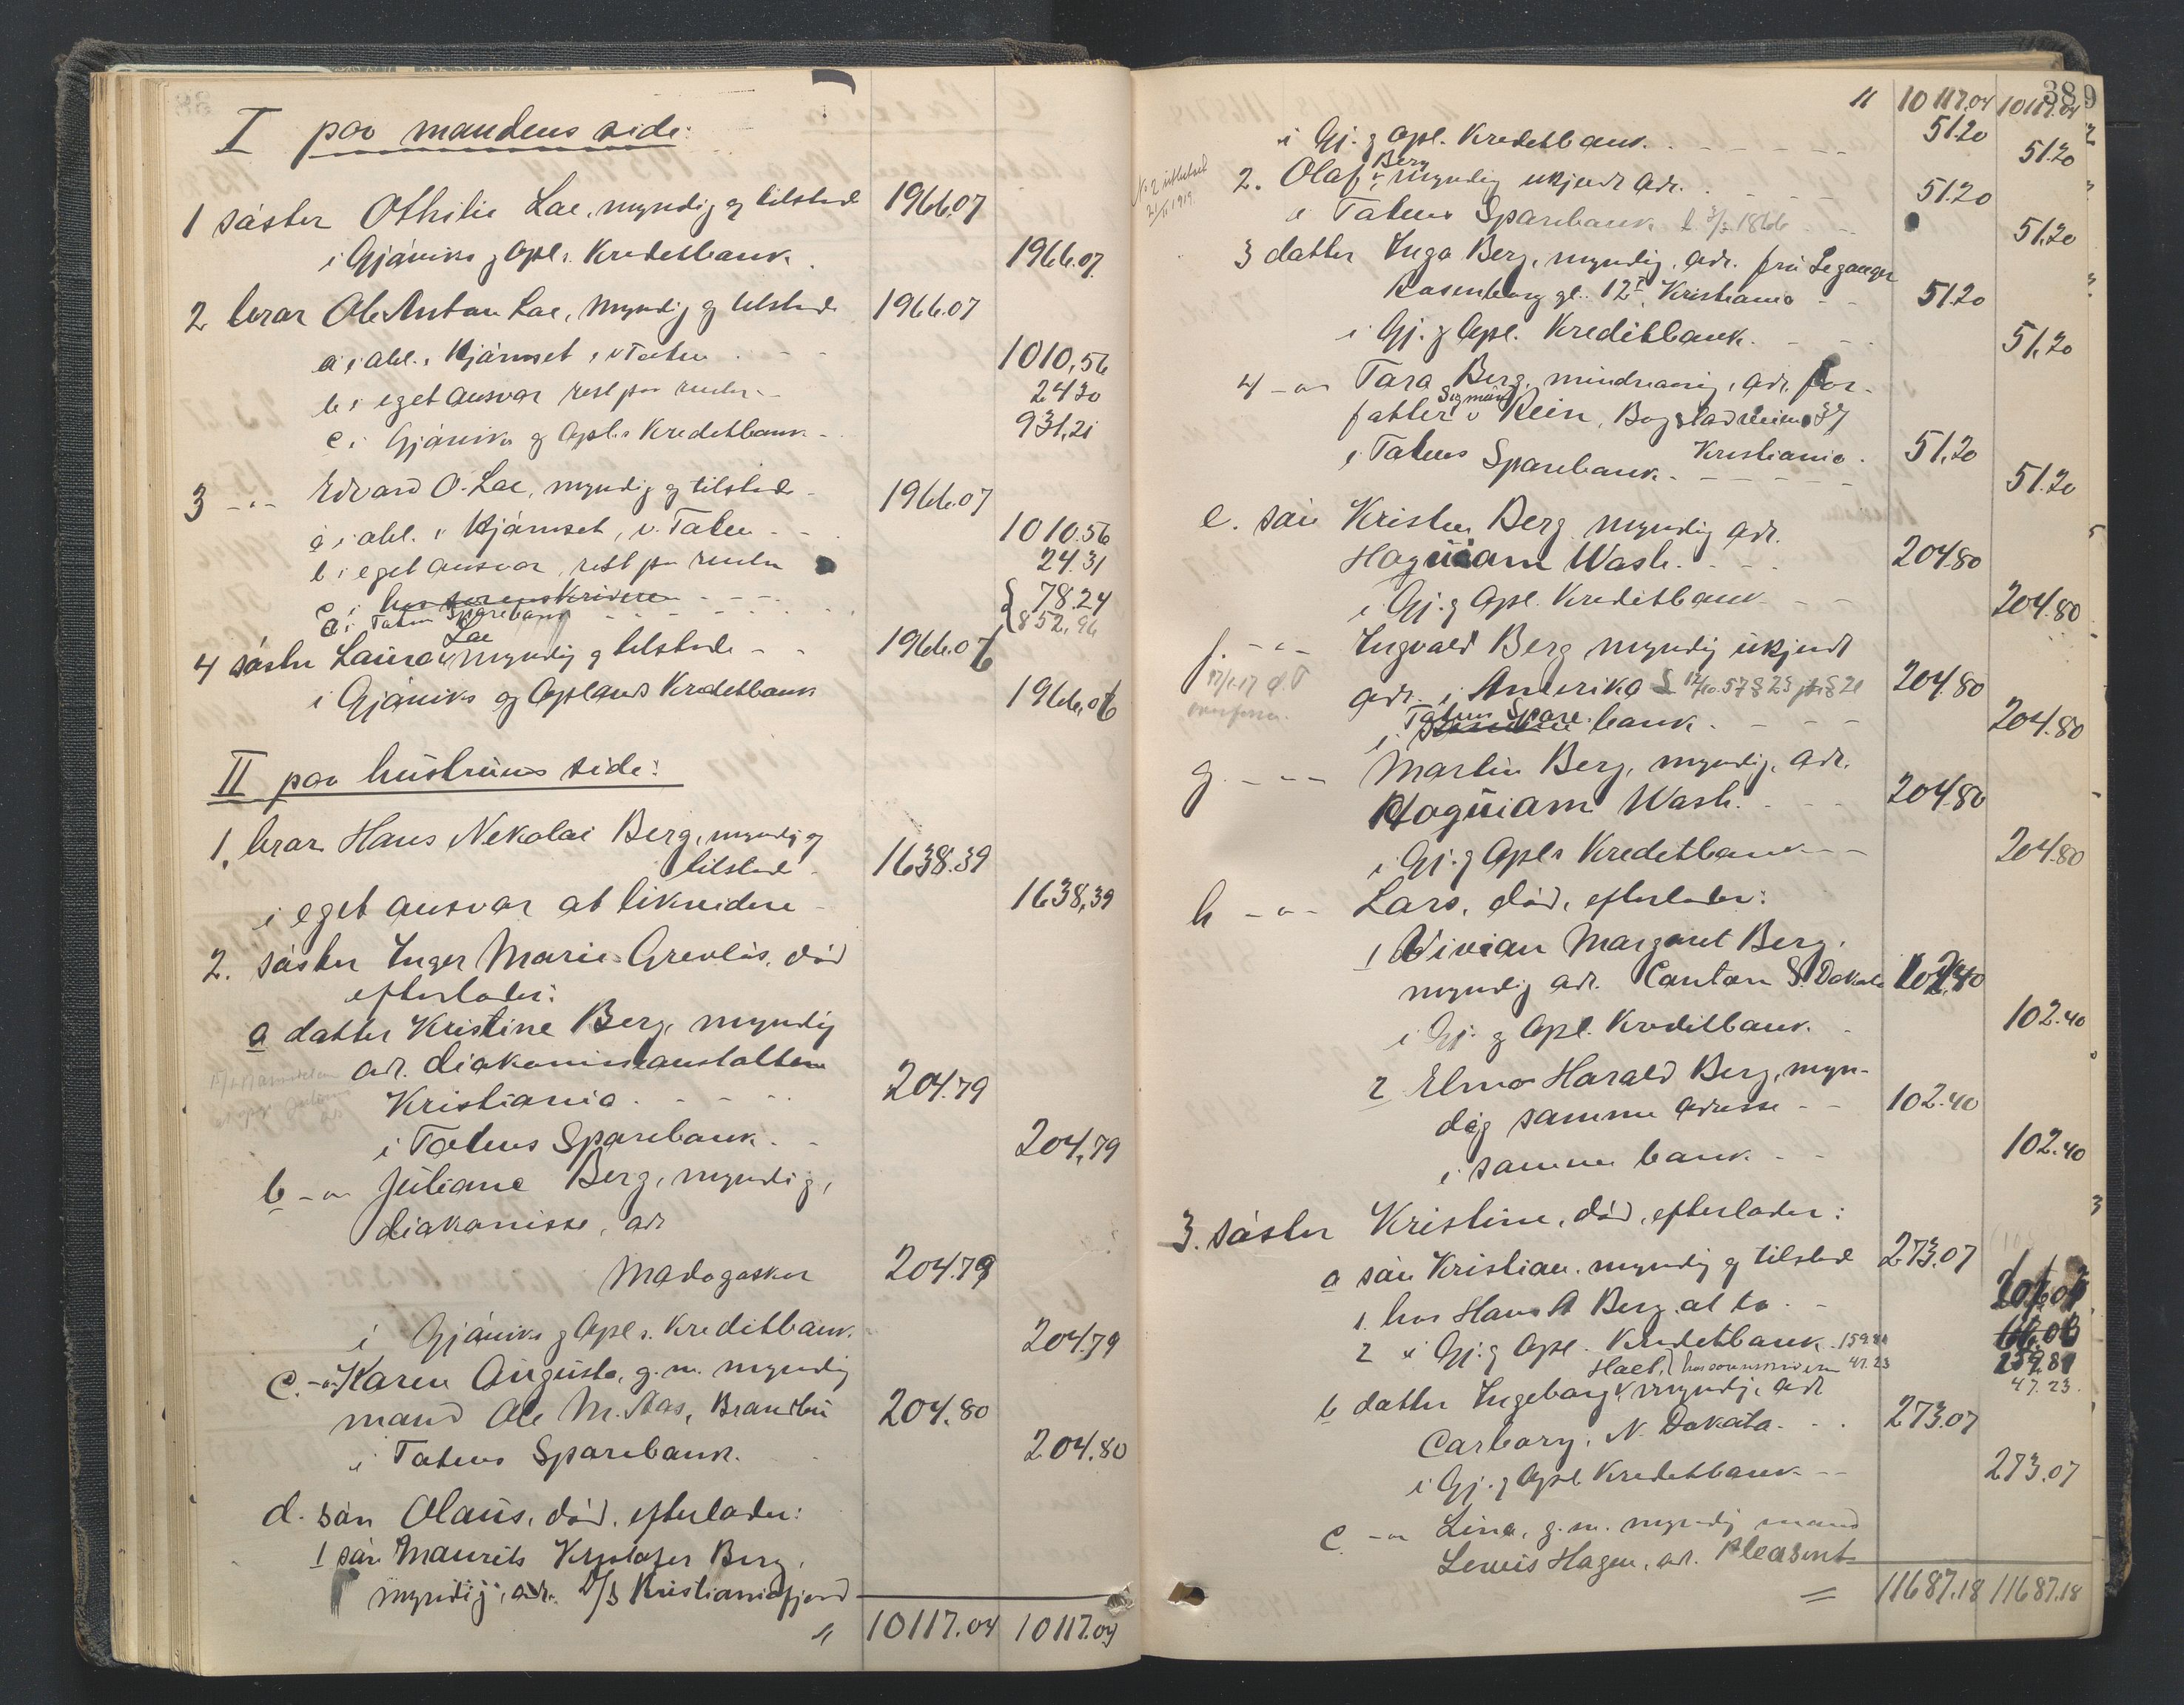 I paa mandens side:
1 søster Othilie Lae, myndig og tilstede 1966.07
i Gjøviks og Opl. Kreditbank. 1966.07
2 bror Ole Anton Lae, myndig og tilstede 1966.07
a i obl. i Hjørnset, v Toten 1010,56
b i eget ansvar rest paa renter 24.30
c i Gjøviks og Opl.s Kreditbank 931,21
3 -"- Edvard O. Lae, myndig og tilstede 1966.07
a i obl. i Hjørnset, v. Toten 1010.56
b i eget ansvar, rest paa renter 24.31
c i hos sorenskriveren 78.24
d i Toten Sparebank 852,96
4 søster Laura Lae myndig og tilstede 1966.06
i Gjøviks og Oplands Kreditbank 1966,06
II paa hustruens side:
1. bror Hans Nekolai Berg, myndig og
tilstede 1638.39
i eget ansvar at likvidere 1638,39
2. søster Inger Marie Grevløs, død
efterlader:
a datter Kristine Berg, myndig
adr. diakonisseanstalten
Kristiania 204.79
i Totens Sparebank 204,79
b -"- Juliane Berg, myndig,
diakonisse, adr
Madagaskar 204.79
i Gjøviks og Opl.s. Kreditbank. 204.79
c. -"- Karen Augusta, g.m. myndig
mand Ole M. Aas, Brandbu 204.80
i Totens Sparebank. 204.80
d. søn Olaus, død, efterlader:
1 søn Maurits Kristofer Berg,
myndig, adr. D/S Kristianiafjord
" 10117.04 10117.04
389
" 10117.04 10117.04
i Gj. og Opl. Kreditbank. 51.20 51.20
No 2 utbetalt
1919.
2. Olaf Berg, myndig ukjendt adr. 51.20
i Totens Sparebank f 3/2 1866 51,20
3 datter Inga Berg, myndig, adr. frü Leganger
Rosenborg gt. 12 I, Kristiania 51.20
i Gj. og Opl. Kreditbank. 51,20
4 -"- Tara Berg, mindreaarig, adr. for-
fatter Sigmund Rein, Bogstadveien 37
Kristiania. 51,20
i Totens Sparebank. 51.20
e. søn Kristen Berg myndig adr.
Hoquiam Wash. 204.80
i Gj. og Opl. Kreditbank 204.80
f. -"- Ingvald Berg myndig ukjendt
adr. i Amerika 204.80
i Toten Spare bank. 204.80
g. -"- Martin Berg, myndig, adr.
Hoquiam Wash. 204.80
i Gj. og Opl.s Kreditbank 204.80
h -"- Lars, død, efterlader:
1 Vivian Margaret Berg,
myndig adr. Canton S. Dakota 102.40
i Gj. og Opl. Kreditbank. 102.40
2 Elmo Harald Berg, myn-
dig samme adresse 102.40
i samme bank. 102.40
3. søster Kristine, død, efterlader:
a søn Kristian, myndig og tilstede 273.07
1. hos Hans A Berg at ta
2 i Gj. og Opl. Kreditbank. 159.81 159.81
hos sorenskriveren 47.23 47.23
b datter Ingeborg Hael, myndig, adr
Carbory, N. Dakota. 273.07
i Gj. og Opl Kreditbank 273,07
c -"- Lina, g.m. myndig mand
Lewis Hagen, adr. Pleasent
= 11687.18 11687.18